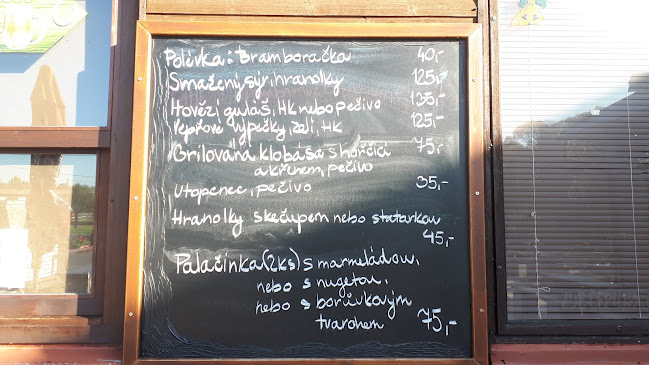 Polévka: Bramboračka 40,-
Smažený sýr, hranolky 125,-
Hovězí guláš, HK nebo pečivo 135,-
Vepřové výpečky, zelí, HK 125,-
Grilovaná klobása s hořčicí 75,-
a křenem, pečivo
Utopenec, pečivo 35,-
Hranolky s kečupem nebo statarkou
45,-
Palačinka (2ks) s marmeládou,
nebo s nugetou,
nebo s borůvkovým
tvarohem 75,-